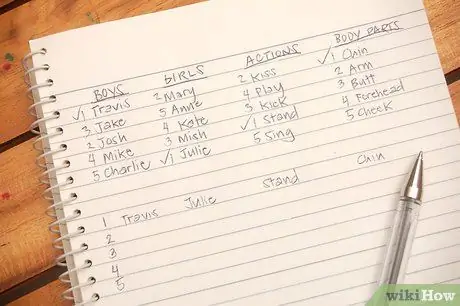 BOYS GIRLS ACTIONS BODY PARTS
✓1 Travis 2 Mary 2 Kiss ✓1 Chin
3 Jake 5 Anne 4 Play 2 Arm
2 Josh 4 Kate 3 Kick 3 Butt
4 Mike 3 Mish ✓1 Stand 4 Forehead
5 Charlie ✓1 Julie 5 Sing 5 Cheek
1 Travis Julie Stand Chin
2
3
4
5
wikiHow